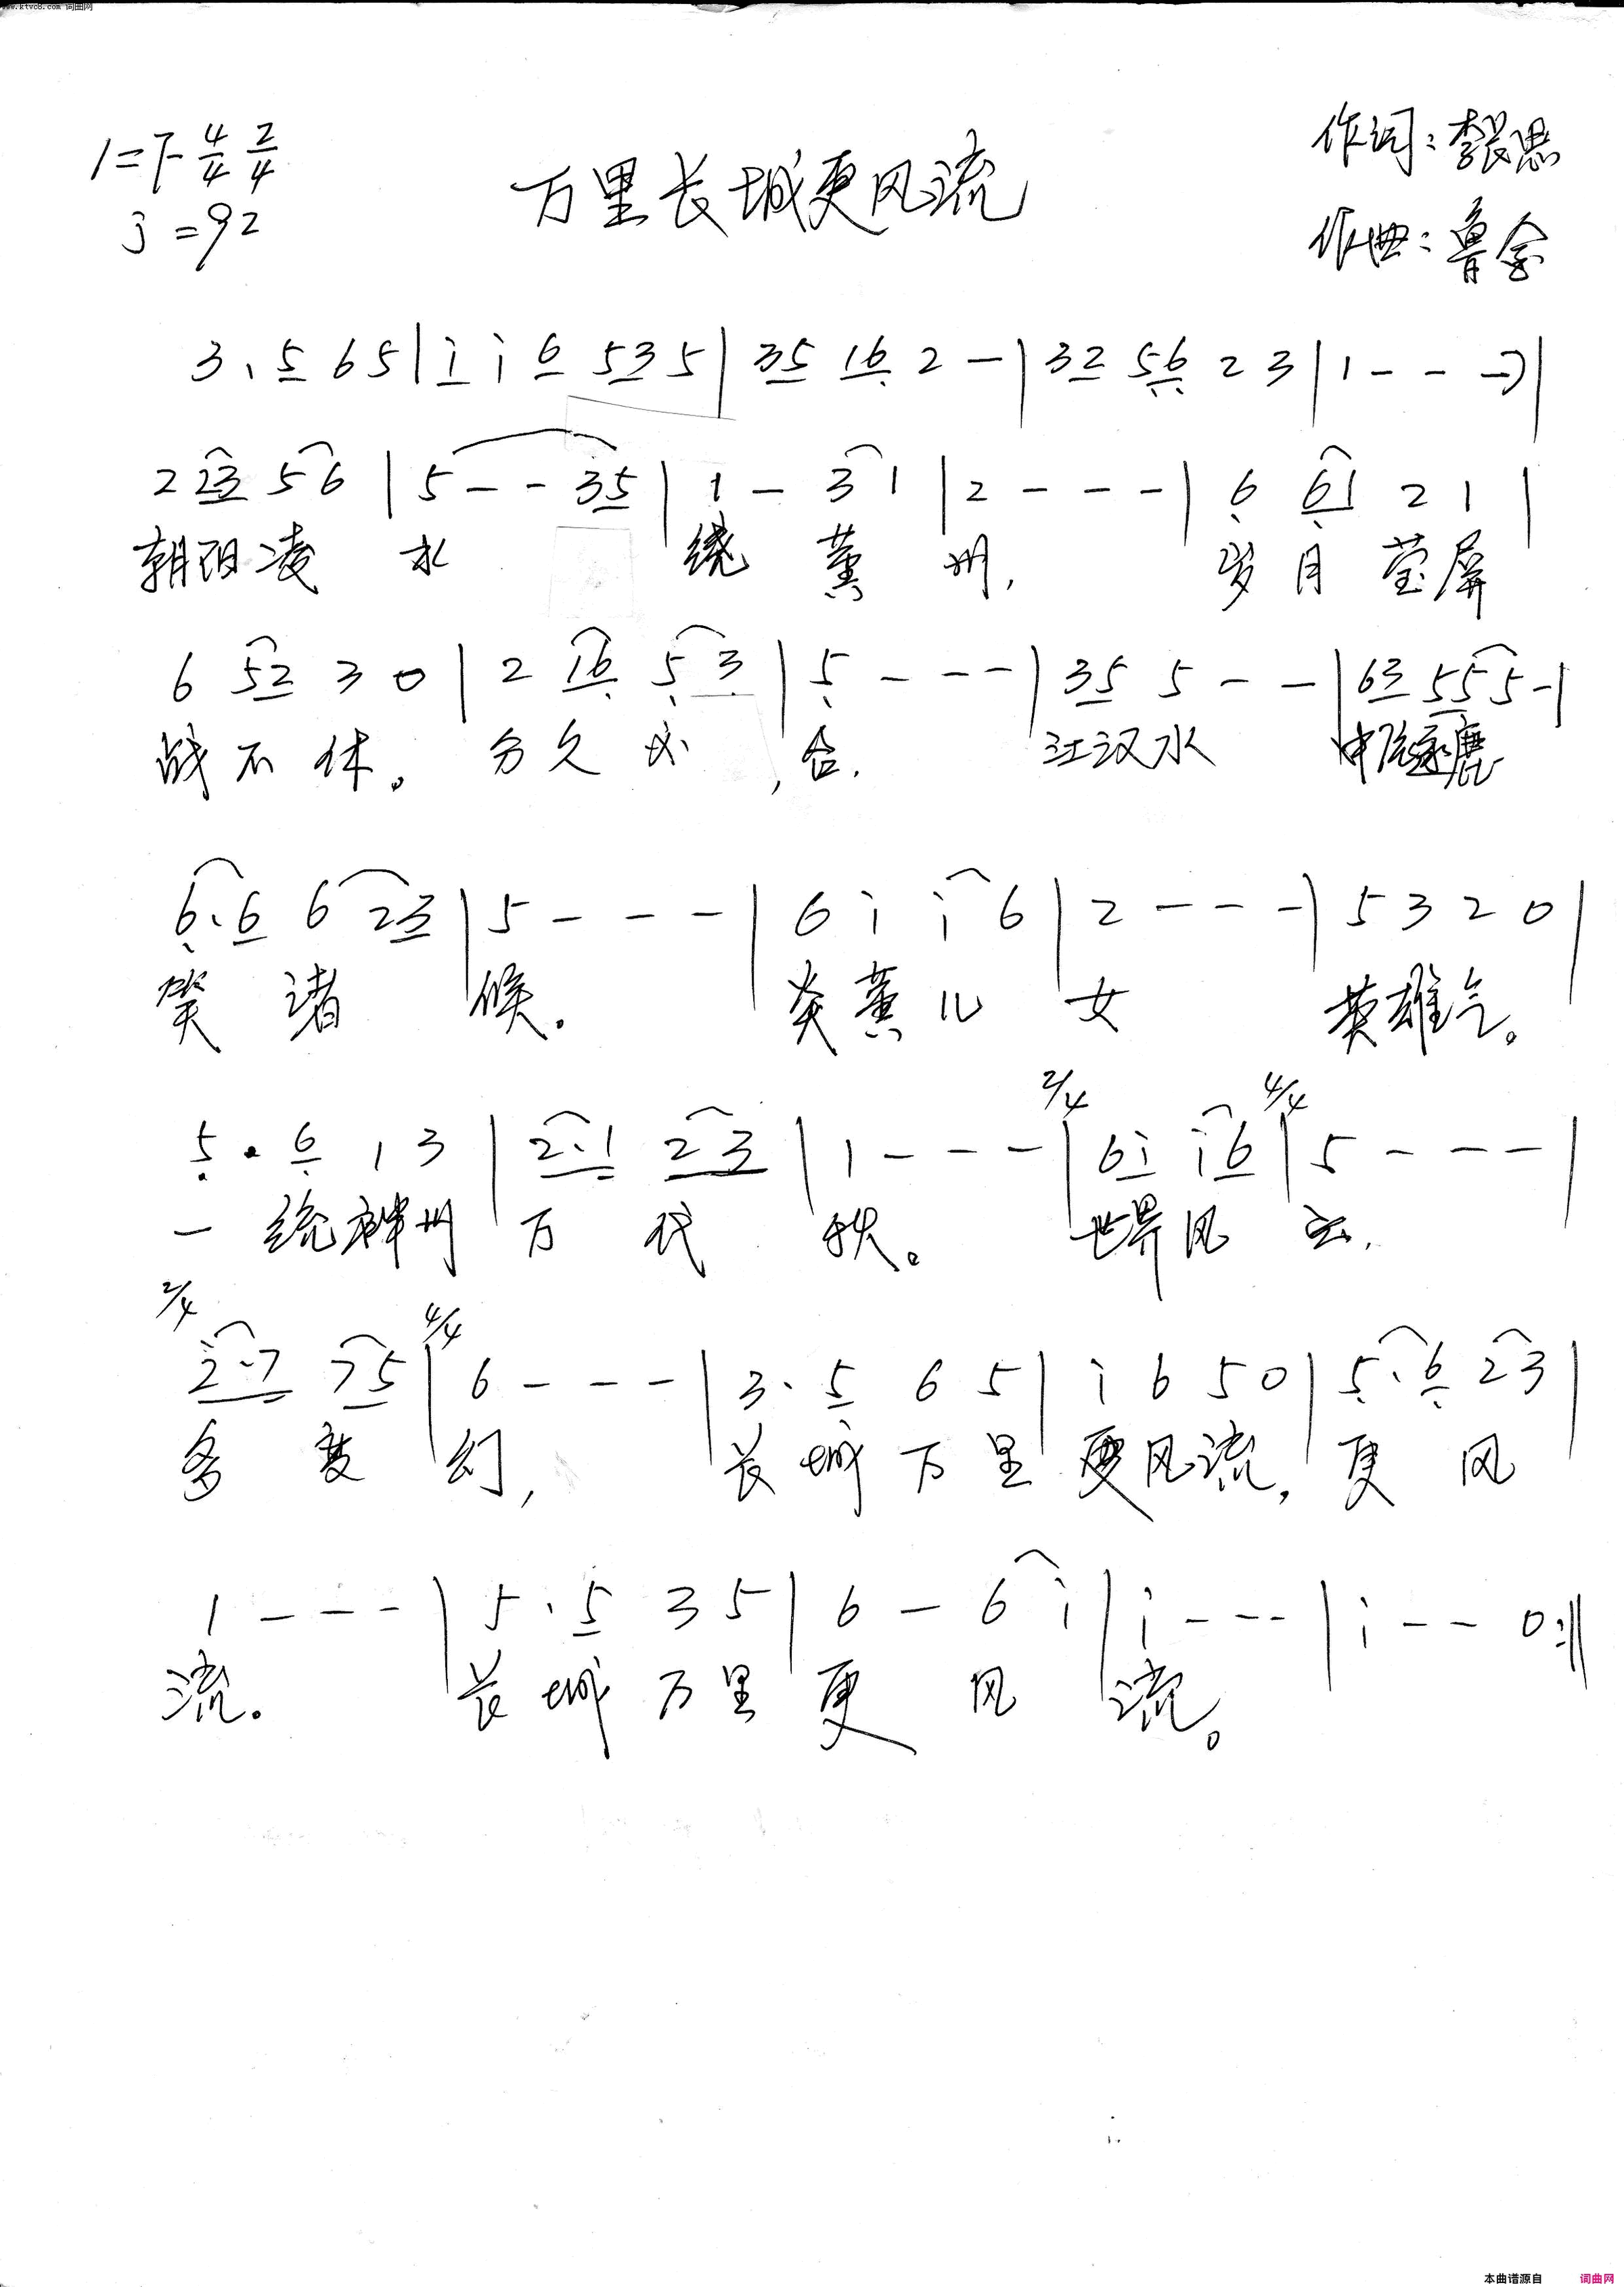 www.ktvc8.com 词曲网
1=F 4/4 2/4
万里长城更风流
作词：李长思
♩=92
作曲：鲁余
3. 5 6 5 | i i 6 5 3 5 | 3 5 1 6 2 - | 3 2 5 6 2 3 | 1 - - -) |
2 23 5 6 | 5 - - 35 | 1 - 3 1 | 2 - - - | 6 61 2 1 |
朝阳凌水 绕 黄 州, 岁月莹屏
6 52 3 0 | 2 16 5 3 | 5 - - - | 35 5 - - | 63 55 5 - |
战不休。 分久必 合, 江汉水 中流逐鹿
6. 6 6 23 | 5 - - - | 6 i i 6 | 2 - - - | 5 3 2 0 |
笑 诸 候。 炎黄儿 女 英雄气。
5. 6 1 3 | 2.1 23 | 1 - - - | 2/4 6i i6 | 4/4 5 - - - |
一 统神州 万 代 秩。 世界风 云,
2/4 2.7 75 | 4/4 6 - - - | 3. 5 6 5 | i 6 5 0 | 5. 6 2 3 |
多 变 幻, 长城万里 更风流, 更 风
1 - - - | 5. 5 3 5 | 6 - 6 i | i - - - | i - - 0 :||
流。 长城万里 更 风 流。
本曲谱源自 词曲网